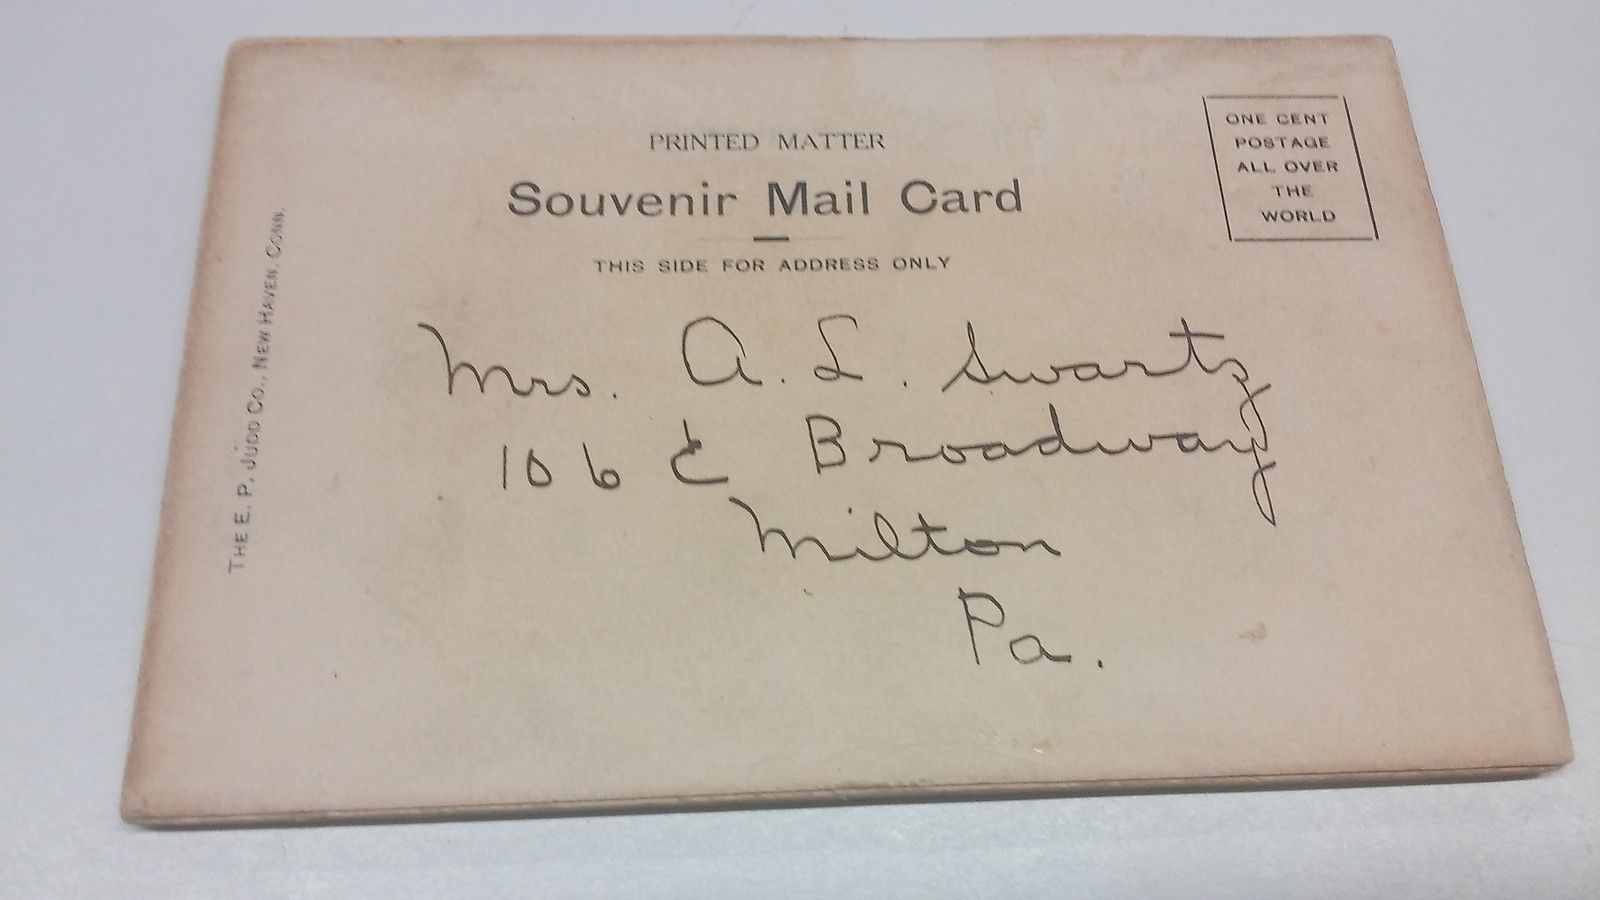 PRINTED MATTER
Souvenir Mail Card
THIS SIDE FOR ADDRESS ONLY
ONE CENT
POSTAGE
ALL OVER
THE
WORLD
THE E. P. JUDD CO., NEW HAVEN, CONN.
Mrs. A. L. Swartz
106 E Broadway
Milton
Pa.